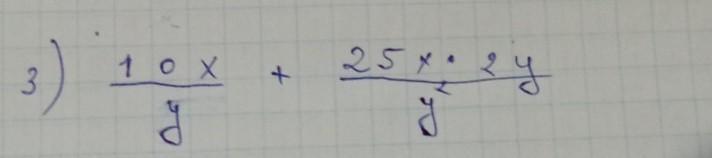 3) \frac{10x}{y} + \frac{25x \cdot 2y}{y^2}